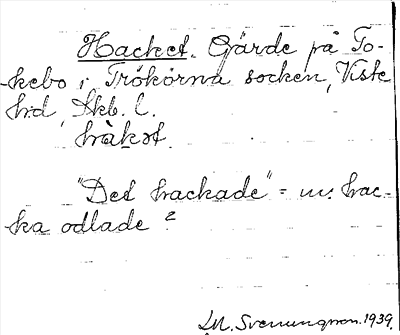 Hacket. Gärde på To-
kebo i Trökörna socken, Viste
hrd, Skb. l.
håkat
"Det hackade" = m. hac-
ka odlade?
M. Svenungsson. 1939.